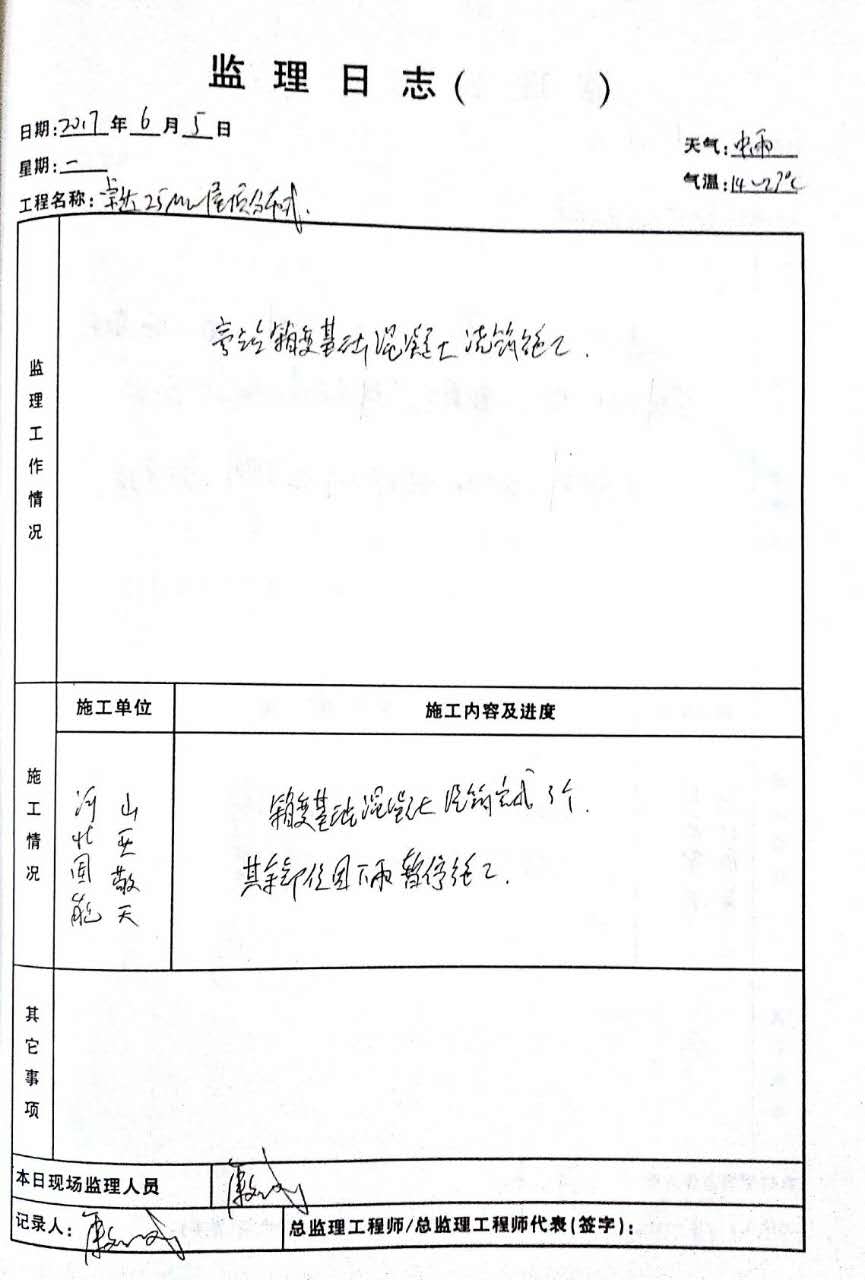 监理日志( )
日期:2017年6月5日
天气:中雨
星期:一
气温:14~27℃
工程名称:卓达25MW屋顶分布式.
监理工作情况
旁站箱变基础混凝土浇筑施工.
施工情况
施工单位
施工内容及进度
河北国能
山亚敬天
箱变基础混凝土浇筑完成3个.
其余部位因下雨暂停施工.
其它事项
本日现场监理人员
记录人:
总监理工程师/总监理工程师代表(签字):